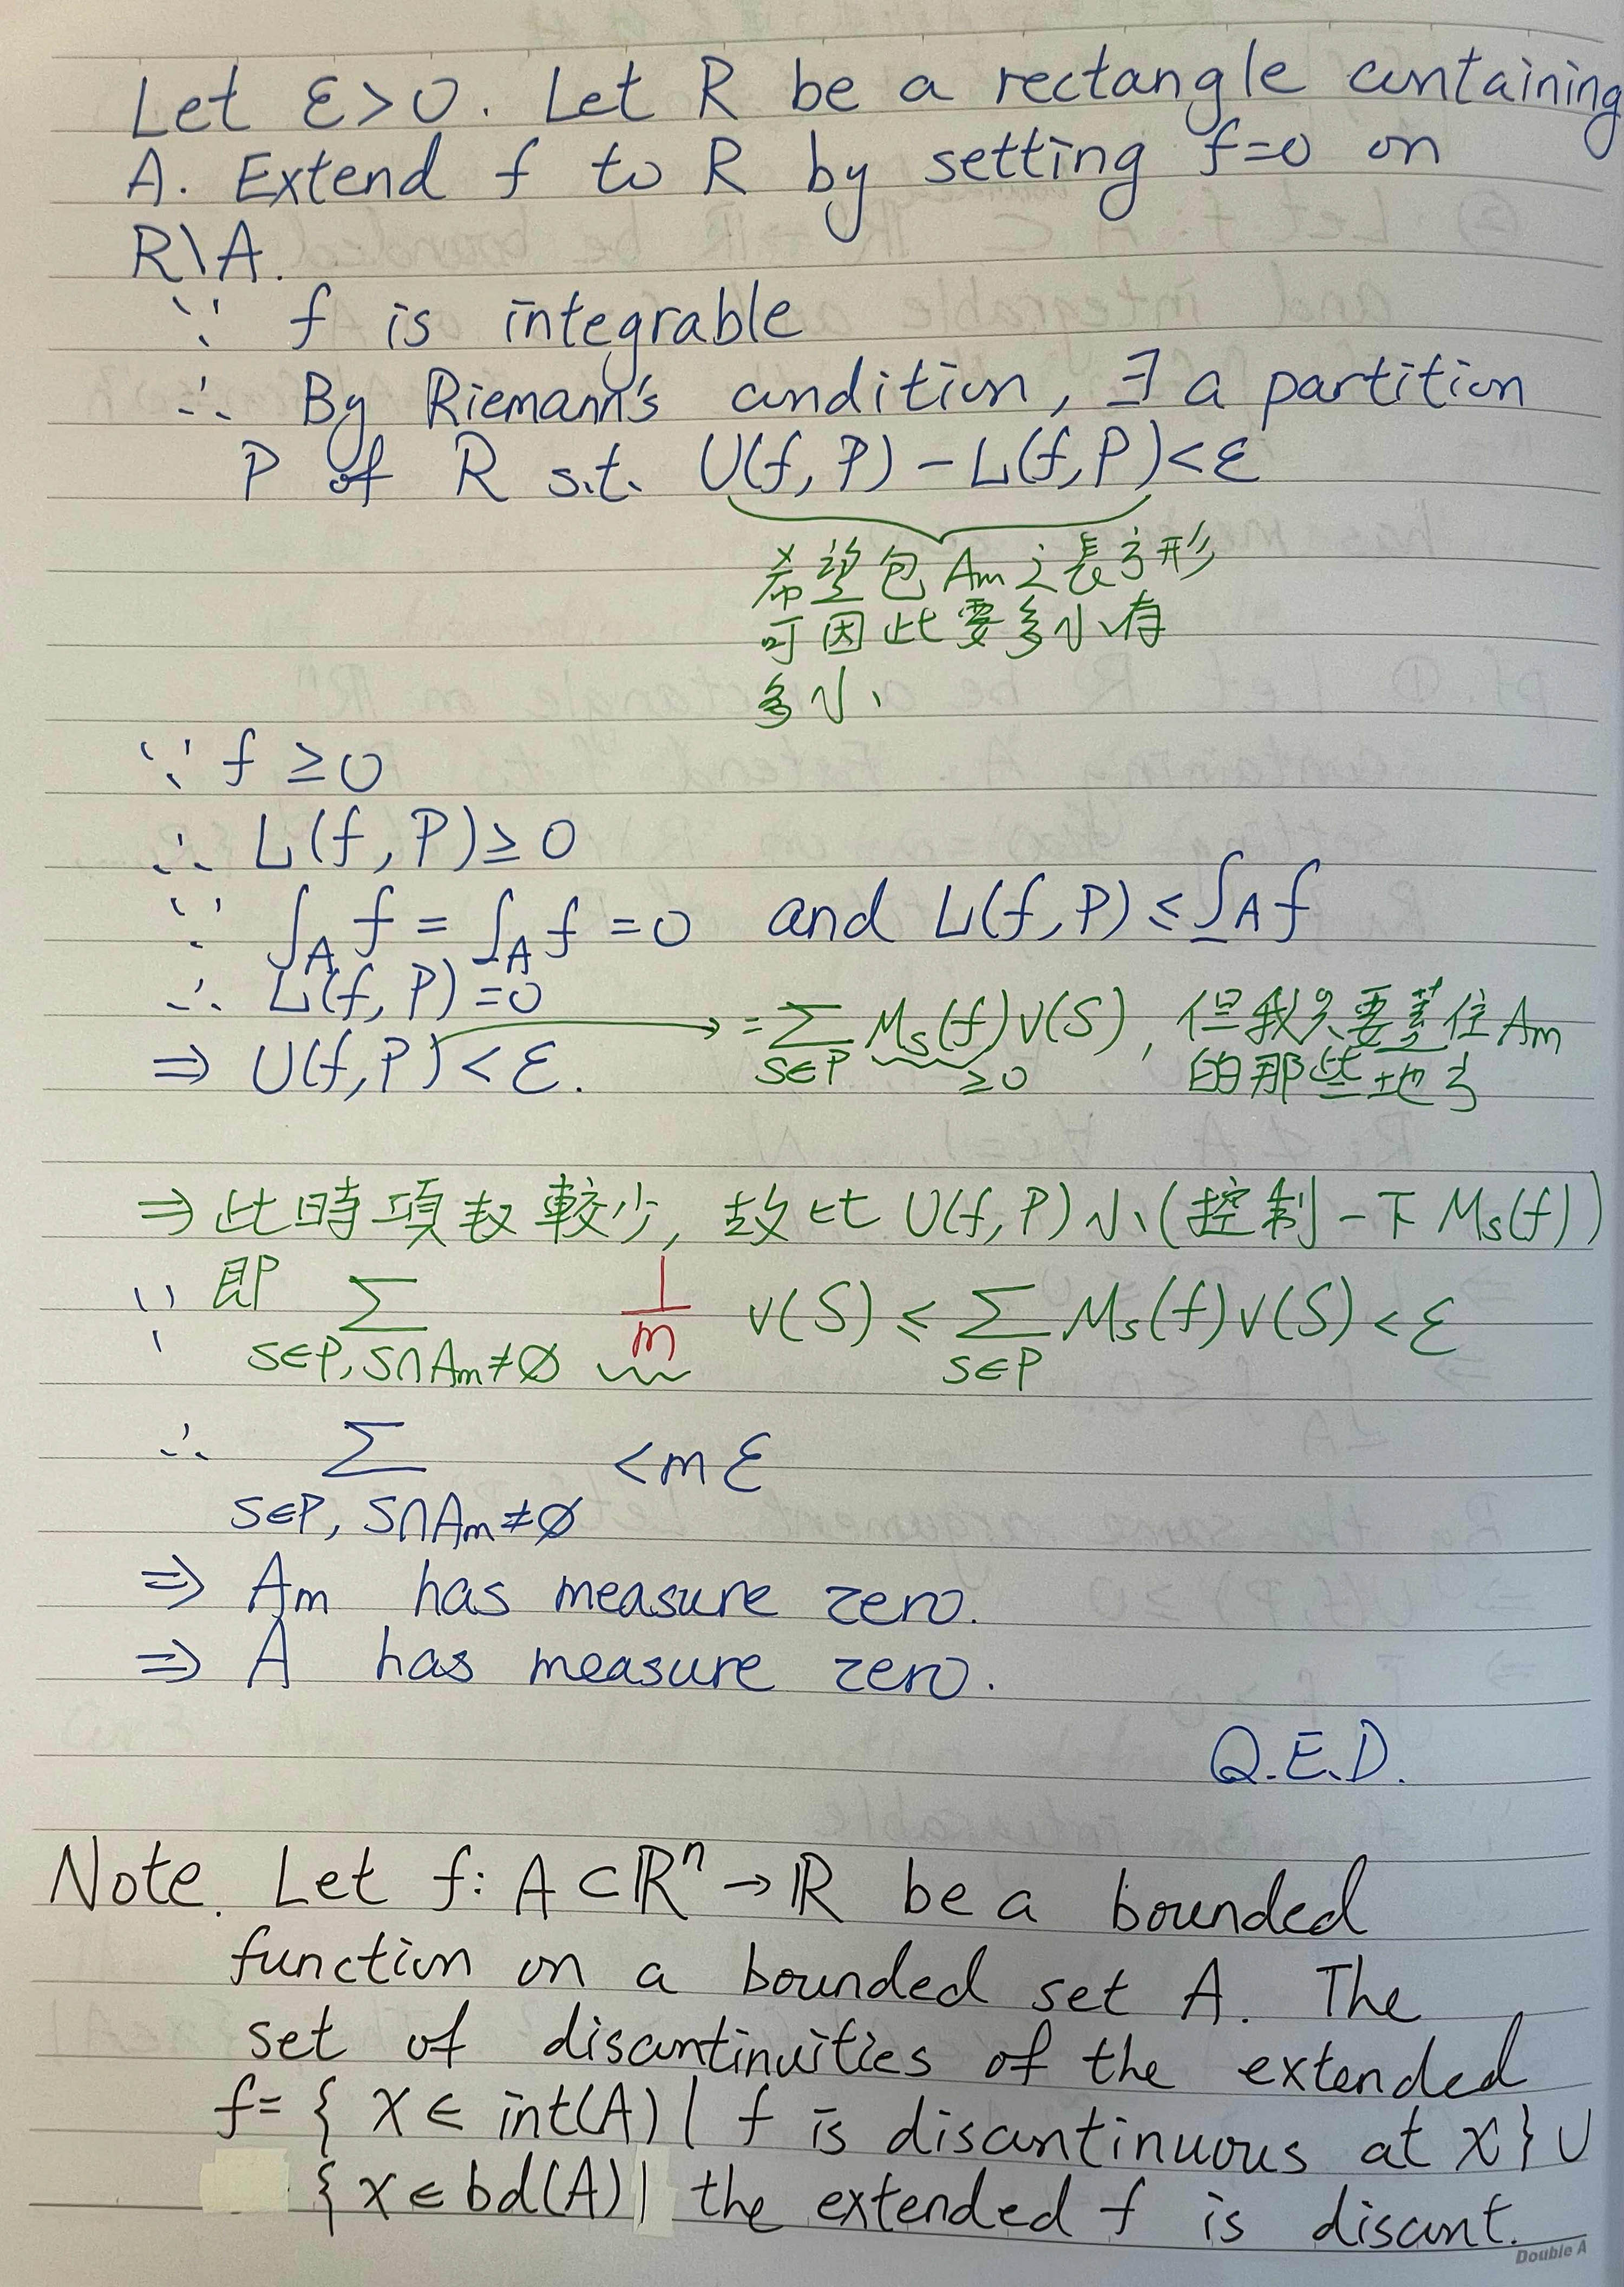 Let ε>0. Let R be a rectangle containing
A. Extend f to R by setting f=0 on
R\A.
∵ f is integrable
∴ By Riemann's condition, ∃ a partition
P of R s.t. U(f,P)-L(f,P)<ε
希望包 Am 之長方形
可因此要多小有
多小、
∵ f ≥0
∴ L(f,P)≥0
∵ ∫A f = ∫A f =0 and L(f,P) ≤ ∫A f
∴ L(f,P)=0
⇒ U(f,P)<ε.
→ = ∑ S∈P Ms(f)v(S), 但我只要蓋住 Am
≥0 的那些地方
⇒ 此時項數較少, 故比 U(f,P) 小 (控制一下 Ms(f))
∵ 即 ∑ S∈P, S∩Am≠∅ 1/m v(S) ≤ ∑ S∈P Ms(f)v(S) <ε
∴ ∑ S∈P, S∩Am≠∅ <mε
⇒ Am has measure zero.
⇒ A has measure zero.
Q.E.D.
Note. Let f: A⊂ℝⁿ→ℝ be a bounded
function on a bounded set A. The
set of discontinuities of the extended
f= { x ∈ int(A) | f is discontinuous at x} ∪
{ x ∈ bd(A) | the extended f is discont.
Double A